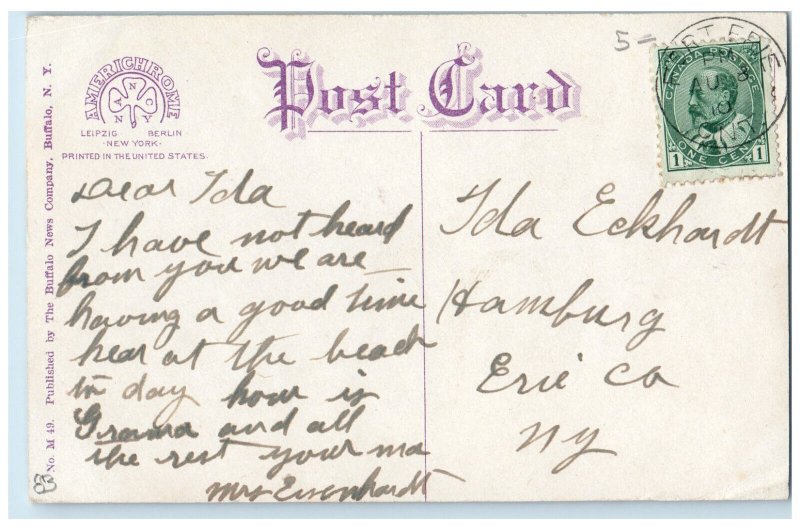 AMERICHROME
ANCO
NY
LEIPZIG BERLIN
·NEW YORK·
PRINTED IN THE UNITED STATES.
Post Card
5=
FORT ERIE
AU
10
CANADA POSTAGE
1 ONE CENT 1
No. M 49. Published by The Buffalo News Company, Buffalo, N. Y.
Dear Ida
I have not heard
from you we are
having a good time
hear at the beach
to day how is
Grama and all
the rest your ma
Mrs Eisenhardt
Ida Eckhardt
Hamburg
Erie Co
NY